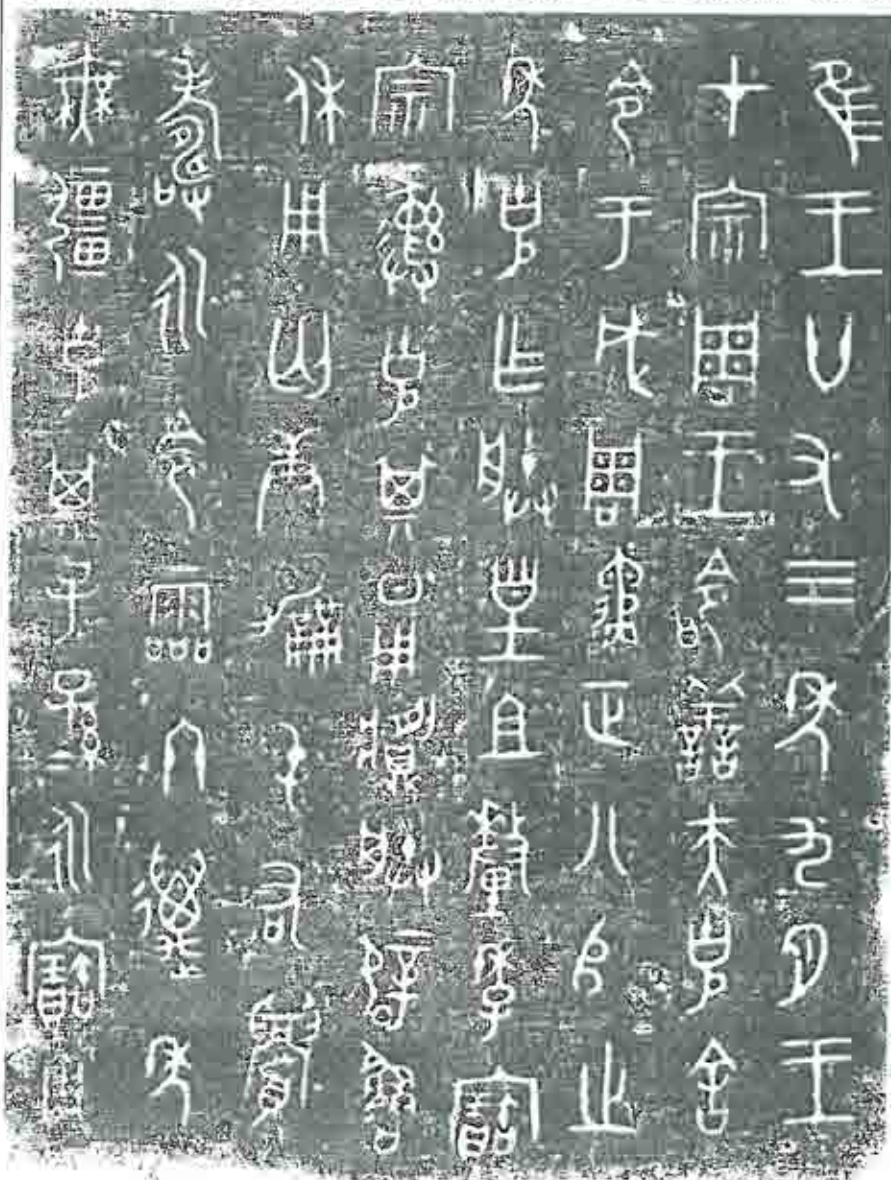 隹王廿又三年九月王
才宗周王令善夫克舍
令于成周遹正八𠂤之
年克乍朕皇且釐季寶
宗彝克其日用𩰬朕辟魯
休用匄康勒屯右眉
壽永令霝冬萬年
無疆克其子子孫孫永寶用